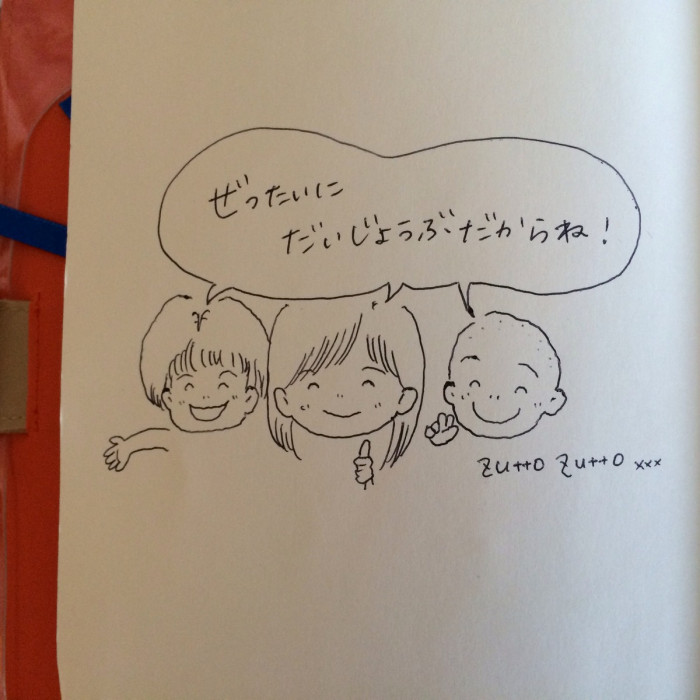 ぜったいに
だいじょうぶだからね!
zutto zutto xxx